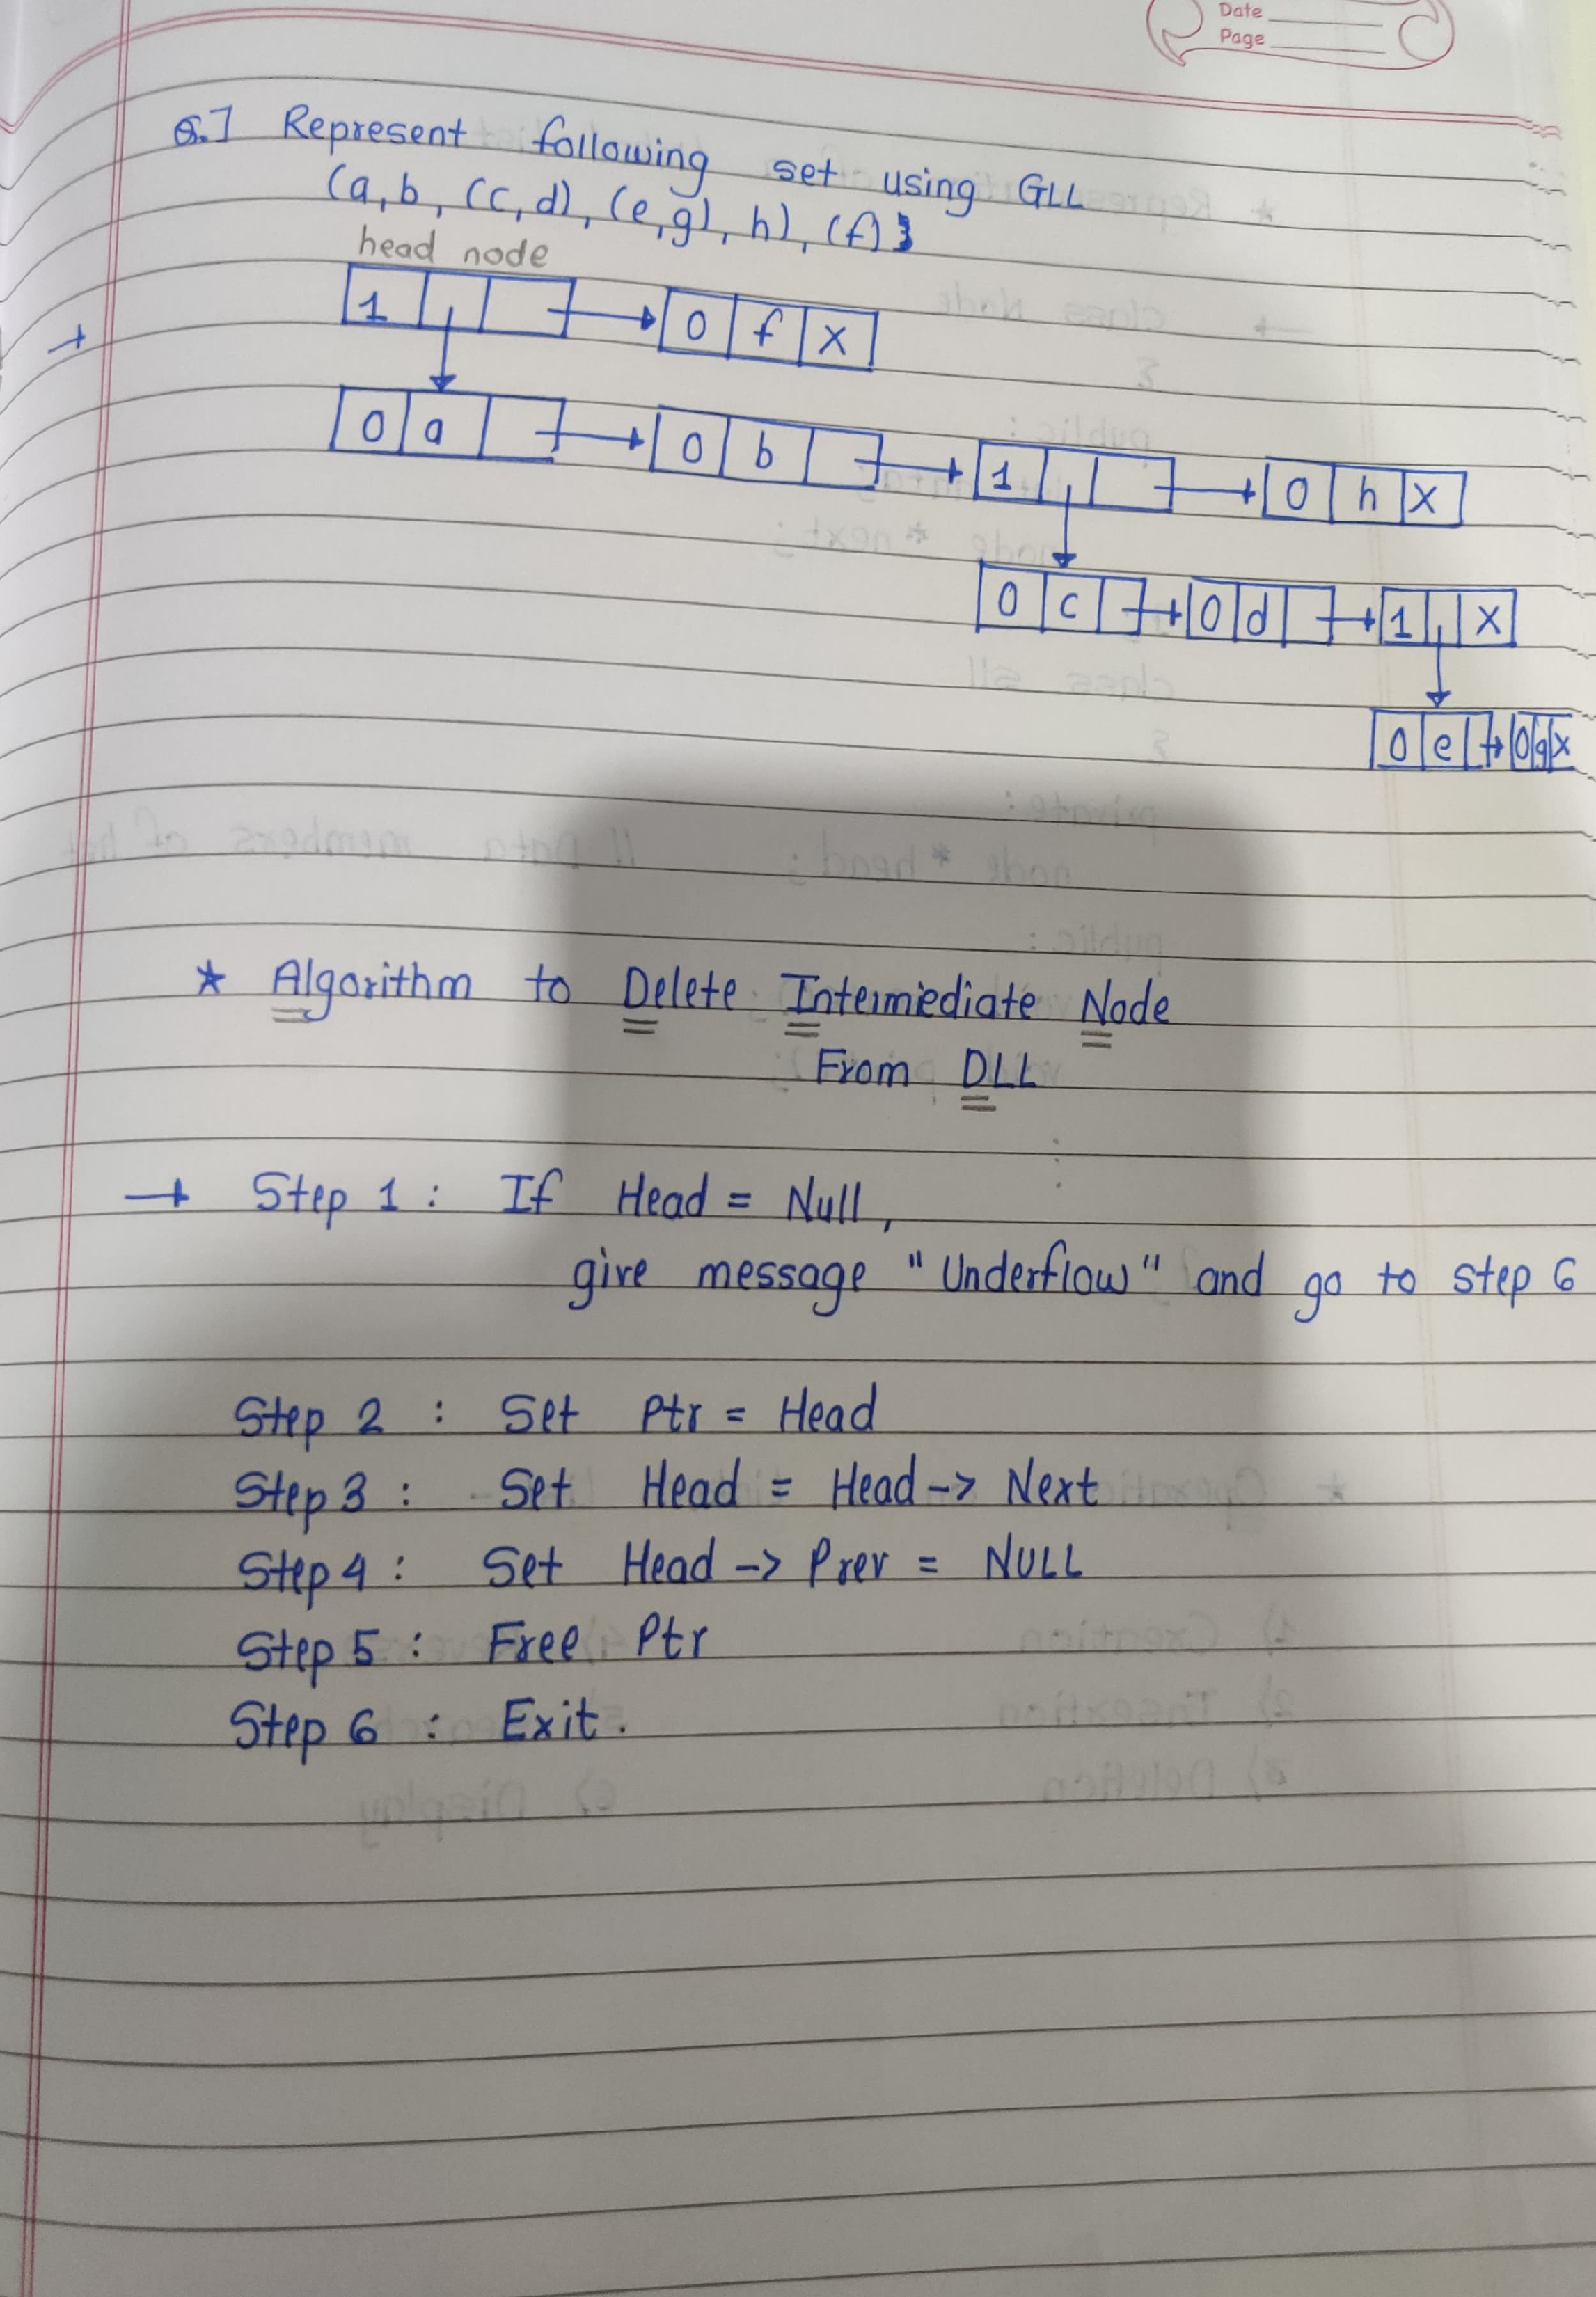 Date
Page
Q.] Represent following set using GLL
(a, b, (c, d), (e, g), h), (f) }
head node
1 0 f X
0 a 0 b 1 0 h X
0 c 0 d 1 X
0 e 0 g X
* Algorithm to Delete Intermediate Node
From DLL
→ Step 1 : If Head = Null,
give message "Underflow" and go to step 6
Step 2 : Set Ptr = Head
Step 3 : Set Head = Head -> Next
Step 4 : Set Head -> Prev = NULL
Step 5 : Free Ptr
Step 6 : Exit.